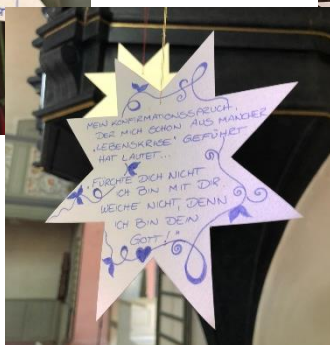 MEIN KONFIRMATIONSSPRUCH,
DER MICH SCHON AUS MANCHER
„LEBENSKRISE“ GEFÜHRT
HAT LAUTET...
„FÜRCHTE DICH NICHT
ICH BIN MIT DIR
WEICHE NICHT, DENN
ICH BIN DEIN
GOTT!“